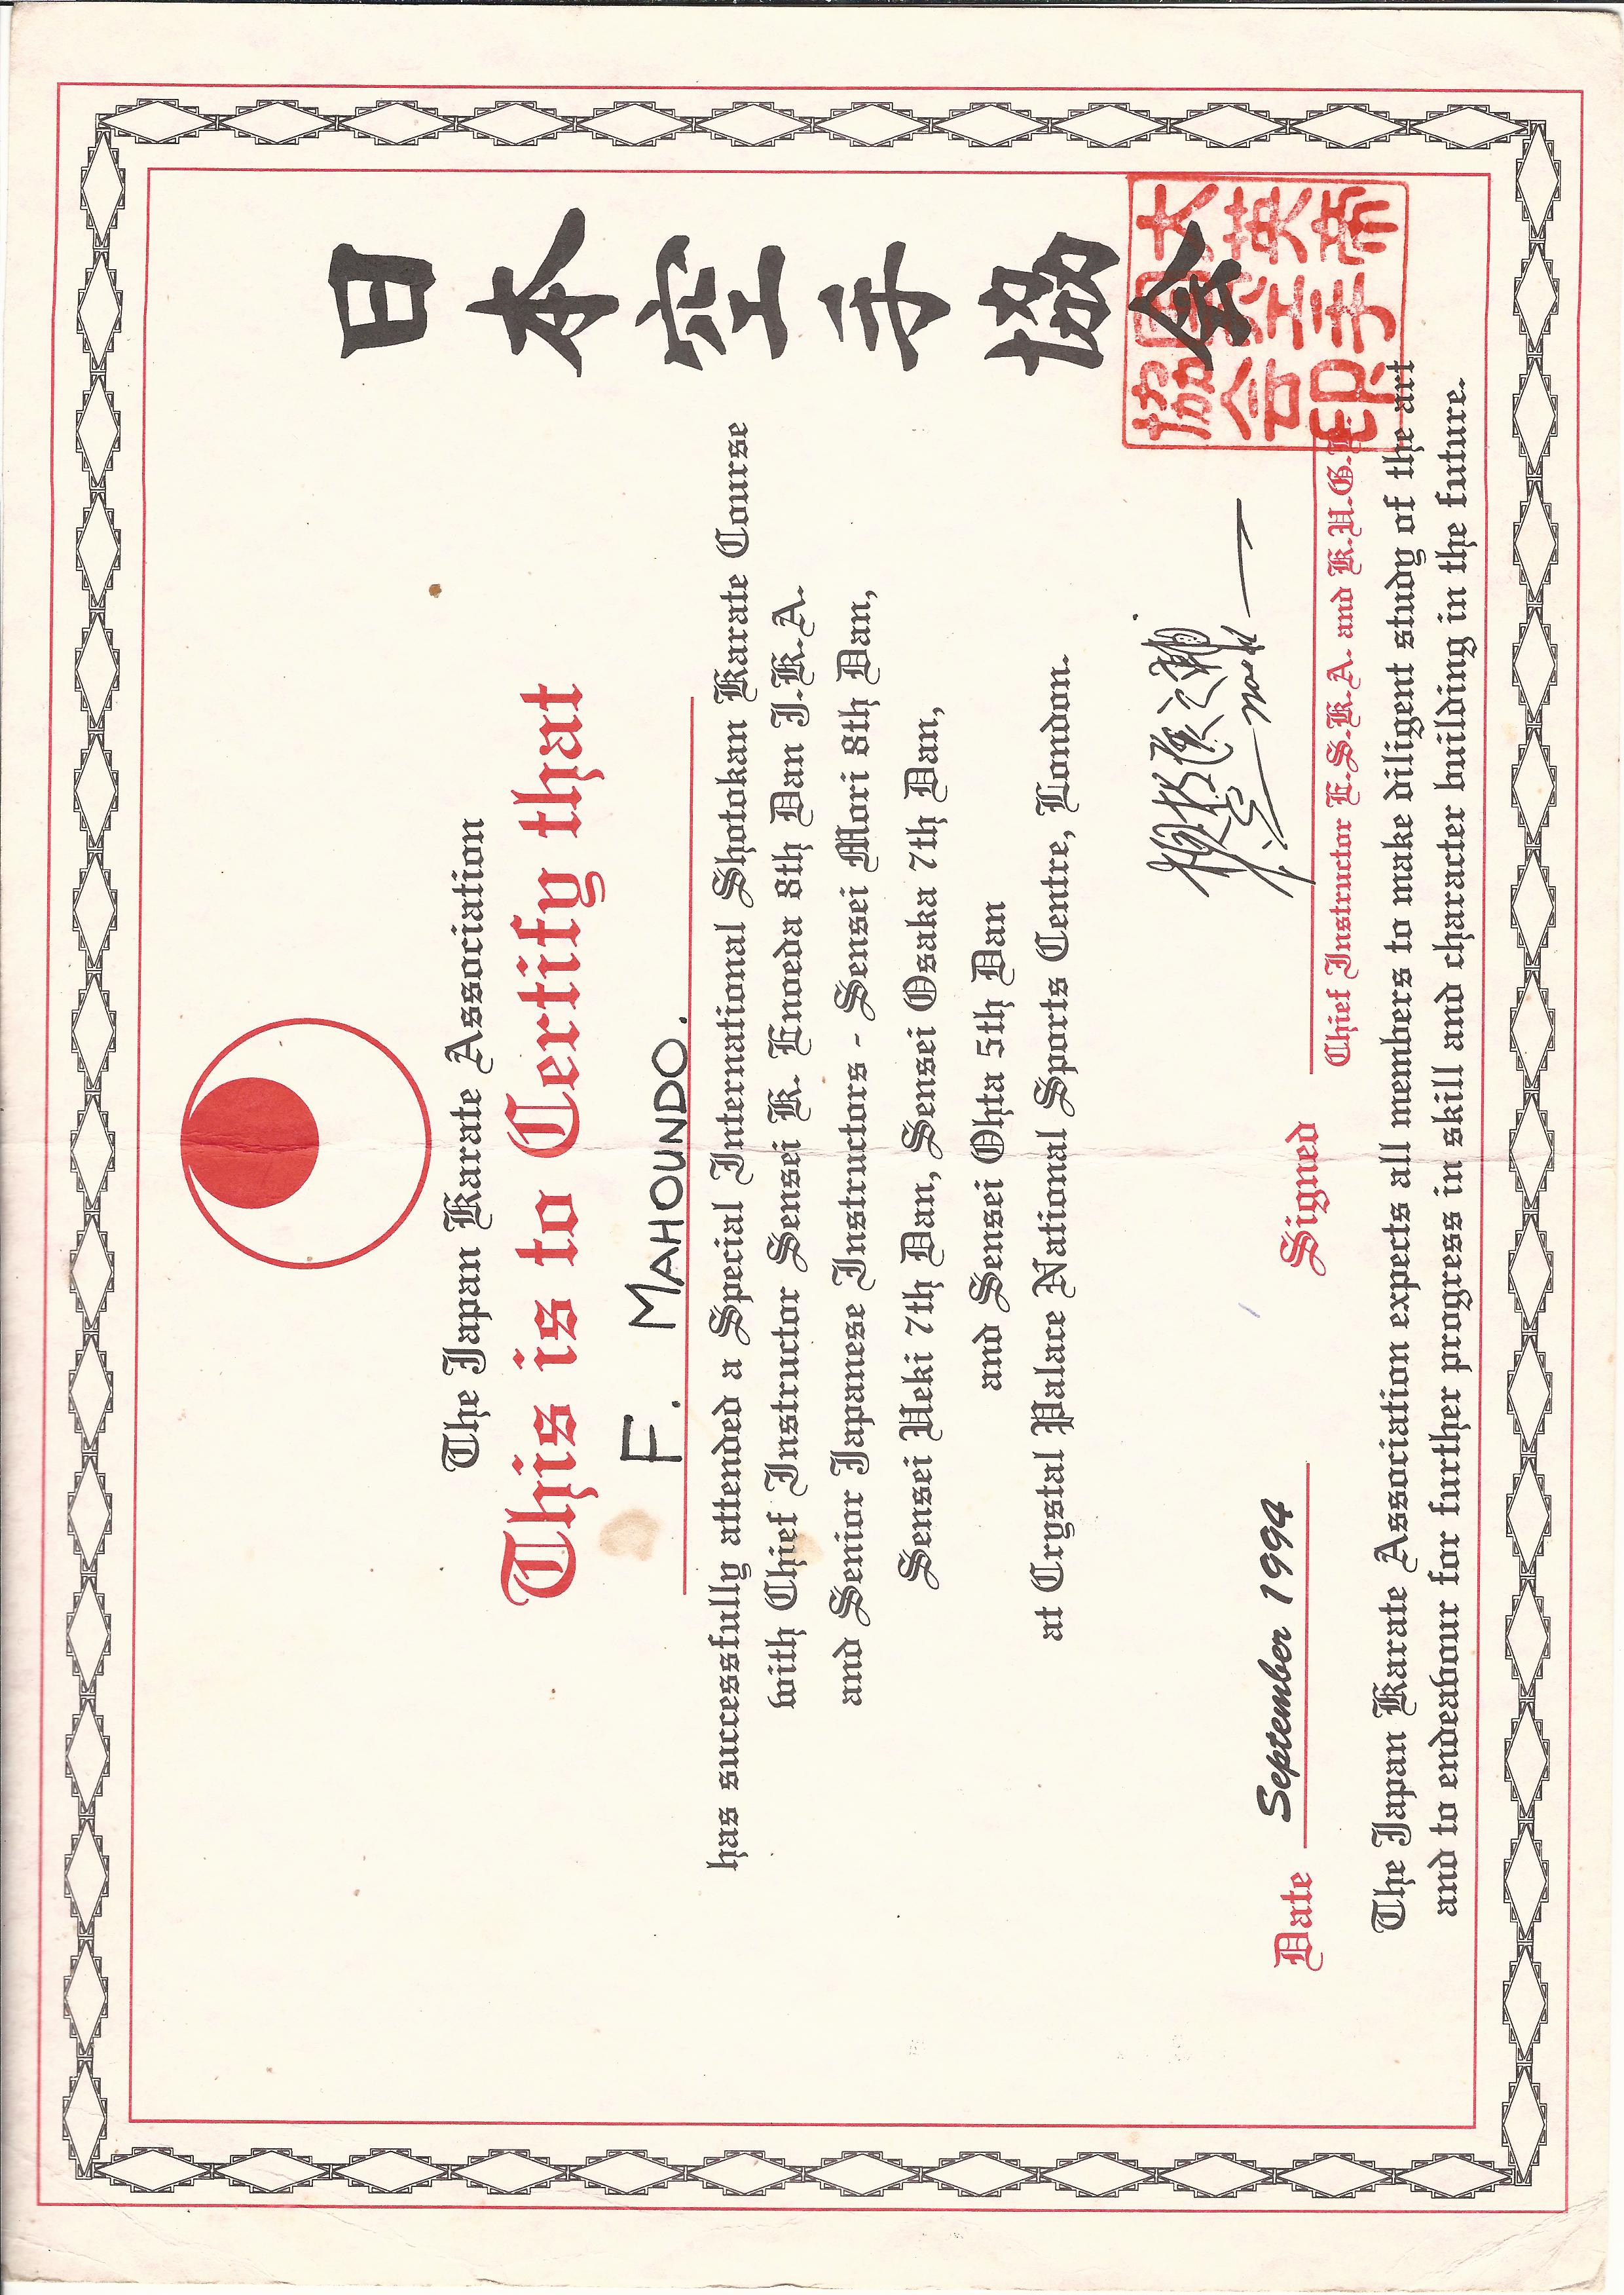 The Japan Karate Association
This is to Certify that
F. MAHOUNDO.
has successfully attended a Special International Shotokan Karate Course
with Chief Instructor Sensei K. Enoeda 8th Dan J.K.A.
and Senior Japanese Instructors - Sensei Mori 8th Dan,
Sensei Ueki 7th Dan, Sensei Osaka 7th Dan,
and Sensei Ohta 5th Dan
at Crystal Palace National Sports Centre, London.
日本空手協会
Date September 1994
Signed
Chief Instructor E.S.K.A. and K.U.G.B.
大英帝
空手
協会印
The Japan Karate Association expects all members to make diligent study of the art
and to endeavour for further progress in skill and character building in the future.